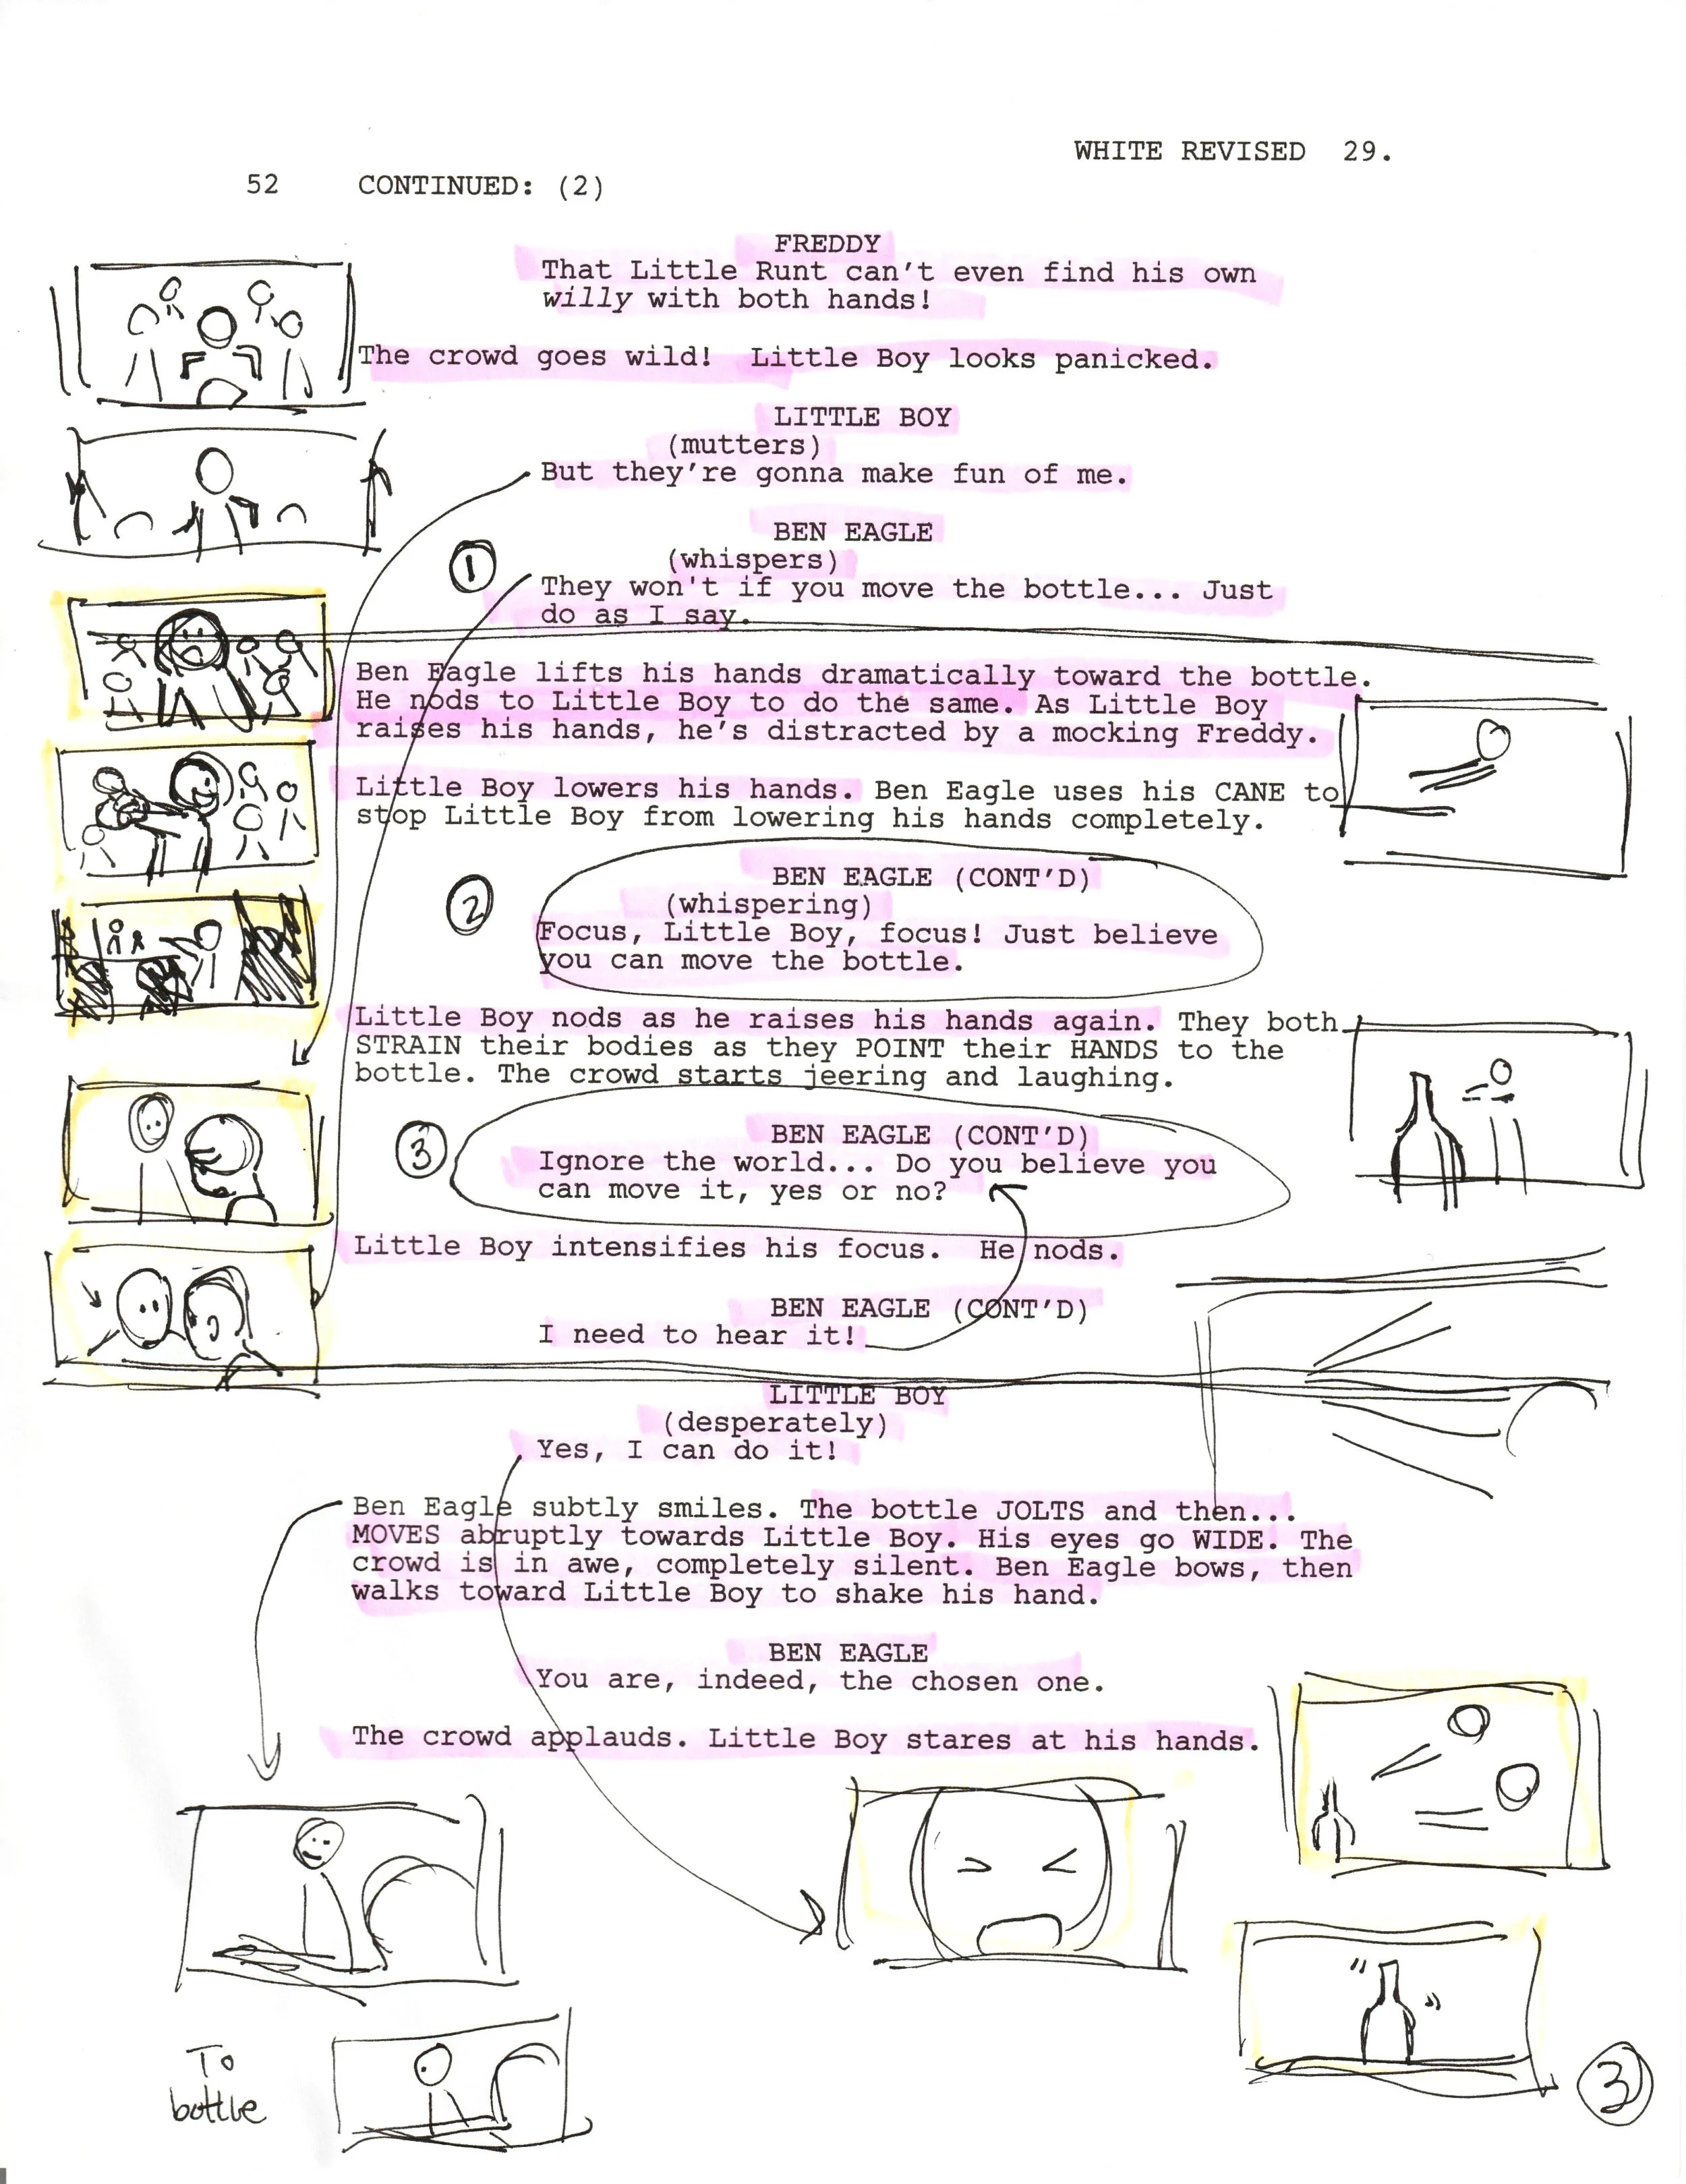 WHITE REVISED 29.
52 CONTINUED: (2)
FREDDY
That Little Runt can't even find his own
willy with both hands!
The crowd goes wild! Little Boy looks panicked.
LITTLE BOY
(mutters)
But they're gonna make fun of me.
BEN EAGLE
1 (whispers)
They won't if you move the bottle... Just
do as I say.
Ben Eagle lifts his hands dramatically toward the bottle.
He nods to Little Boy to do the same. As Little Boy
raises his hands, he's distracted by a mocking Freddy.
Little Boy lowers his hands. Ben Eagle uses his CANE to
stop Little Boy from lowering his hands completely.
BEN EAGLE (CONT'D)
2 (whispering)
Focus, Little Boy, focus! Just believe
you can move the bottle.
Little Boy nods as he raises his hands again. They both
STRAIN their bodies as they POINT their HANDS to the
bottle. The crowd starts jeering and laughing.
3 BEN EAGLE (CONT'D)
Ignore the world... Do you believe you
can move it, yes or no?
Little Boy intensifies his focus. He nods.
BEN EAGLE (CONT'D)
I need to hear it!
LITTLE BOY
(desperately)
Yes, I can do it!
Ben Eagle subtly smiles. The bottle JOLTS and then...
MOVES abruptly towards Little Boy. His eyes go WIDE. The
crowd is in awe, completely silent. Ben Eagle bows, then
walks toward Little Boy to shake his hand.
BEN EAGLE
You are, indeed, the chosen one.
The crowd applauds. Little Boy stares at his hands.
To
bottle
3